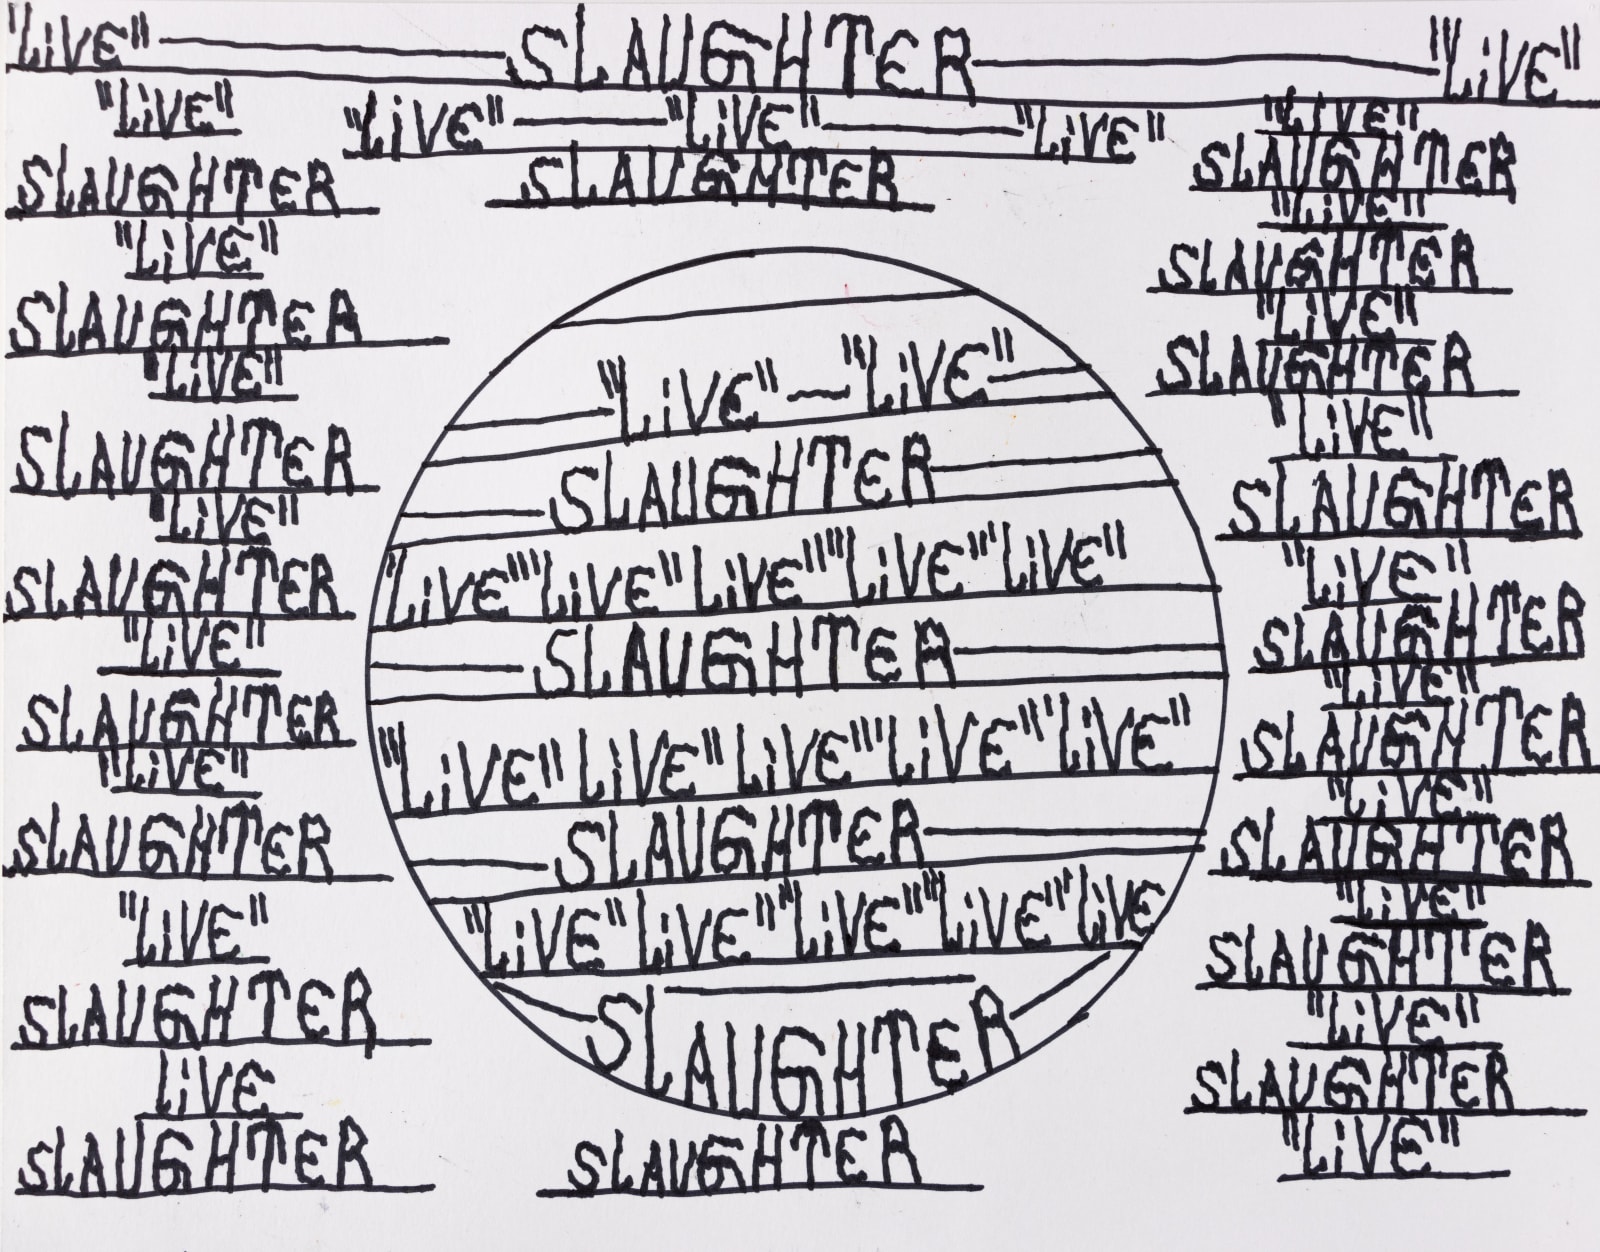 "LiVE" SLAUGHTER "LiVE"
"LiVE" "LiVE" "LiVE"
SLAUGHTER
"LiVE"
SLAUGHTER
"LiVE"
SLAUGHTER
"LiVE"
SLAUGHTER
"LiVE"
SLAUGHTER
"LiVE"
SLAUGHTER
"LiVE"
SLAUGHTER
"LiVE"
SLAUGHTER
LiVE
SLAUGHTER
"LiVE" "LiVE"
SLAUGHTER
"LiVE" "LiVE" LiVE" "LiVE" "LiVE"
SLAUGHTER
"LiVE" LiVE" LiVE" "LiVE" "LiVE"
SLAUGHTER
"LiVE" LiVE" "LiVE" "LiVE" "LiVE
SLAUGHTER
SLAUGHTER
"LiVE"
SLAUGHTER
"LiVE"
SLAUGHTER
"LiVE"
SLAUGHTER
"LiVE"
SLAUGHTER
"LiVE"
SLAUGHTER
"LiVE"
SLAUGHTER
"LiVE"
SLAUGHTER
"LiVE"
SLAUGHTER
"LiVE"
SLAUGHTER
"LiVE"